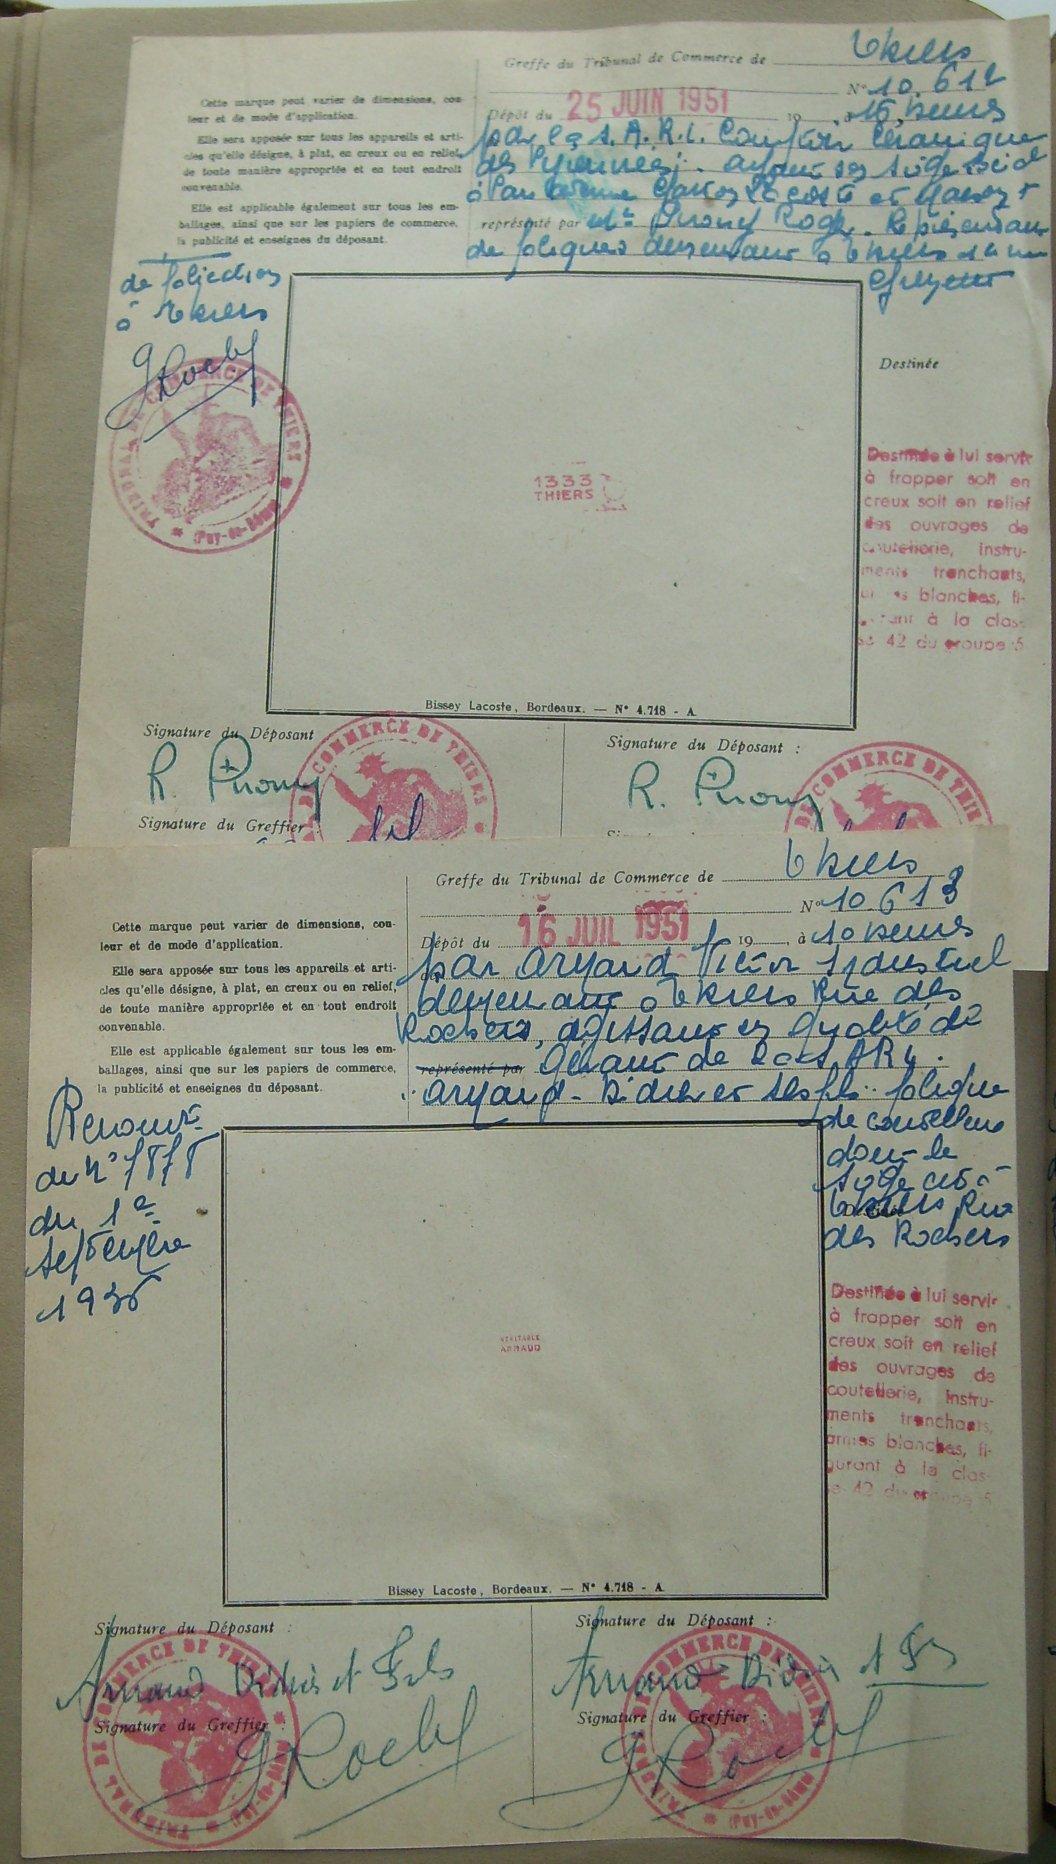 Greffe du Tribunal de Commerce de Thiers
N° 10.612
Dépôt du 25 JUIN 1951 19 à 15 heures
Cette marque peut varier de dimensions, cou-
leur et de mode d'application.
Elle sera apposée sur tous les appareils et arti-
cles qu'elle désigne, à plat, en creux ou en relief,
de toute manière appropriée et en tout endroit
convenable.
Elle est applicable également sur tous les em-
ballages, ainsi que sur les papiers de commerce,
la publicité et enseignes du déposant.
par la S.A.R.L. Comptoir Céramique
des Pyrénées; ayant son siège social
à Pau
représenté par Mr Roger. Représentant
de demeurant à Thiers
à Thiers
GRochl
TRIBUNAL DE COMMERCE DE THIERS
(Puy-de-Dôme)
1333
THIERS
Destinée
Destinée à lui servir
à frapper soit en
creux soit en relief
des ouvrages de
coutellerie, instru-
ments tranchants,
armes blanches, fi-
gurant à la clas-
se 42 du groupe 5
Bissey Lacoste, Bordeaux. — N° 4.718 - A
Signature du Déposant
Signature du Déposant :
Signature du Greffier :
COMMERCE DE THIERS
DE COMMERCE DE THIE
Greffe du Tribunal de Commerce de Thiers
N° 10.613
Dépôt du 16 JUIL 1951 19 à 10 heures
Cette marque peut varier de dimensions, cou-
leur et de mode d'application.
Elle sera apposée sur tous les appareils et arti-
cles qu'elle désigne, à plat, en creux ou en relief,
de toute manière appropriée et en tout endroit
convenable.
Elle est applicable également sur tous les em-
ballages, ainsi que sur les papiers de commerce,
la publicité et enseignes du déposant.
par Arnaud Victor Industriel
demeurant à Thiers Rue des
Rochers, agissant en qualité de
représenté par Gérant de la S.A.R.L.
Arnaud-Didier et ses fils
de coutellerie
dont le
siège est à
Thiers Rue
des Rochers
du 1er
Septembre
1936
VERITABLE
ARNAUD
Destinée à lui servir
à frapper soit en
creux soit en relief
des ouvrages de
coutellerie, instru-
ments tranchants,
armes blanches, fi-
gurant à la clas-
se 42 du groupe 5
Bissey Lacoste, Bordeaux. — N° 4.718 - A
Signature du Déposant :
Signature du Déposant :
Arnaud Didier et Fils
Arnaud Didier et Fs
Signature du Greffier :
Signature du Greffier :
GRochl
GRochl
TRIBUNAL DE COMMERCE DE THIERS
(Puy-de-Dôme)
TRIBUNAL DE COMMERCE DE THIERS
(Puy-de-Dôme)